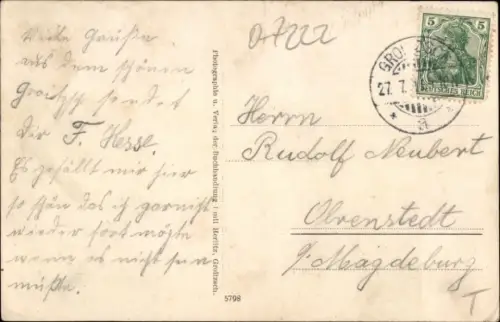 Viele Grüße
aus dem schönen
Groitzsch sendet
Dir F. Hesse.
Es gefällt mir hier
so schön das ich garnicht
wieder fort möchte
wenn es nicht sein
müßte.
Photographie u. Verlag der Buchhandlung Emil Herlitz, Groitzsch.
5798
07222
5 5
DEUTSCHES REICH
27. 7.
* a
Herrn
Rudolf Neubert
Olvenstedt
b/Magdeburg
T